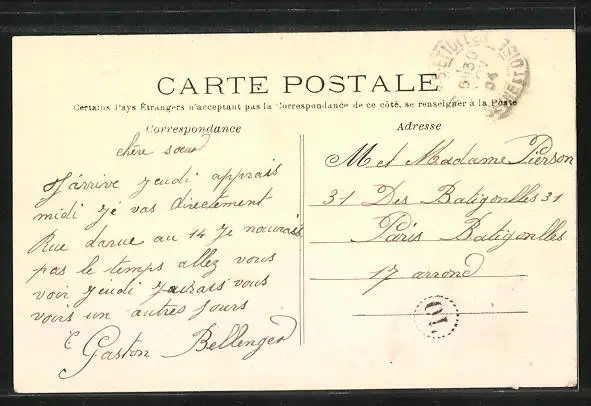 CARTE POSTALE
Certains Pays Étrangers n'acceptant pas la Correspondance de ce côté, se renseigner à la Poste
Correspondance
Adresse
chère sœur
J'arrive jeudi apprais
midi Jé vas directement
Rue daruc au 14 Je naurais
pas le temps allez vous
voir jeudi Jaurais vous
voirs un autres Jours
Gaston Bellenger
M et Madame Pierson
31 Des Batigonlles 31
Paris Batigonlles
17 arrond
OL